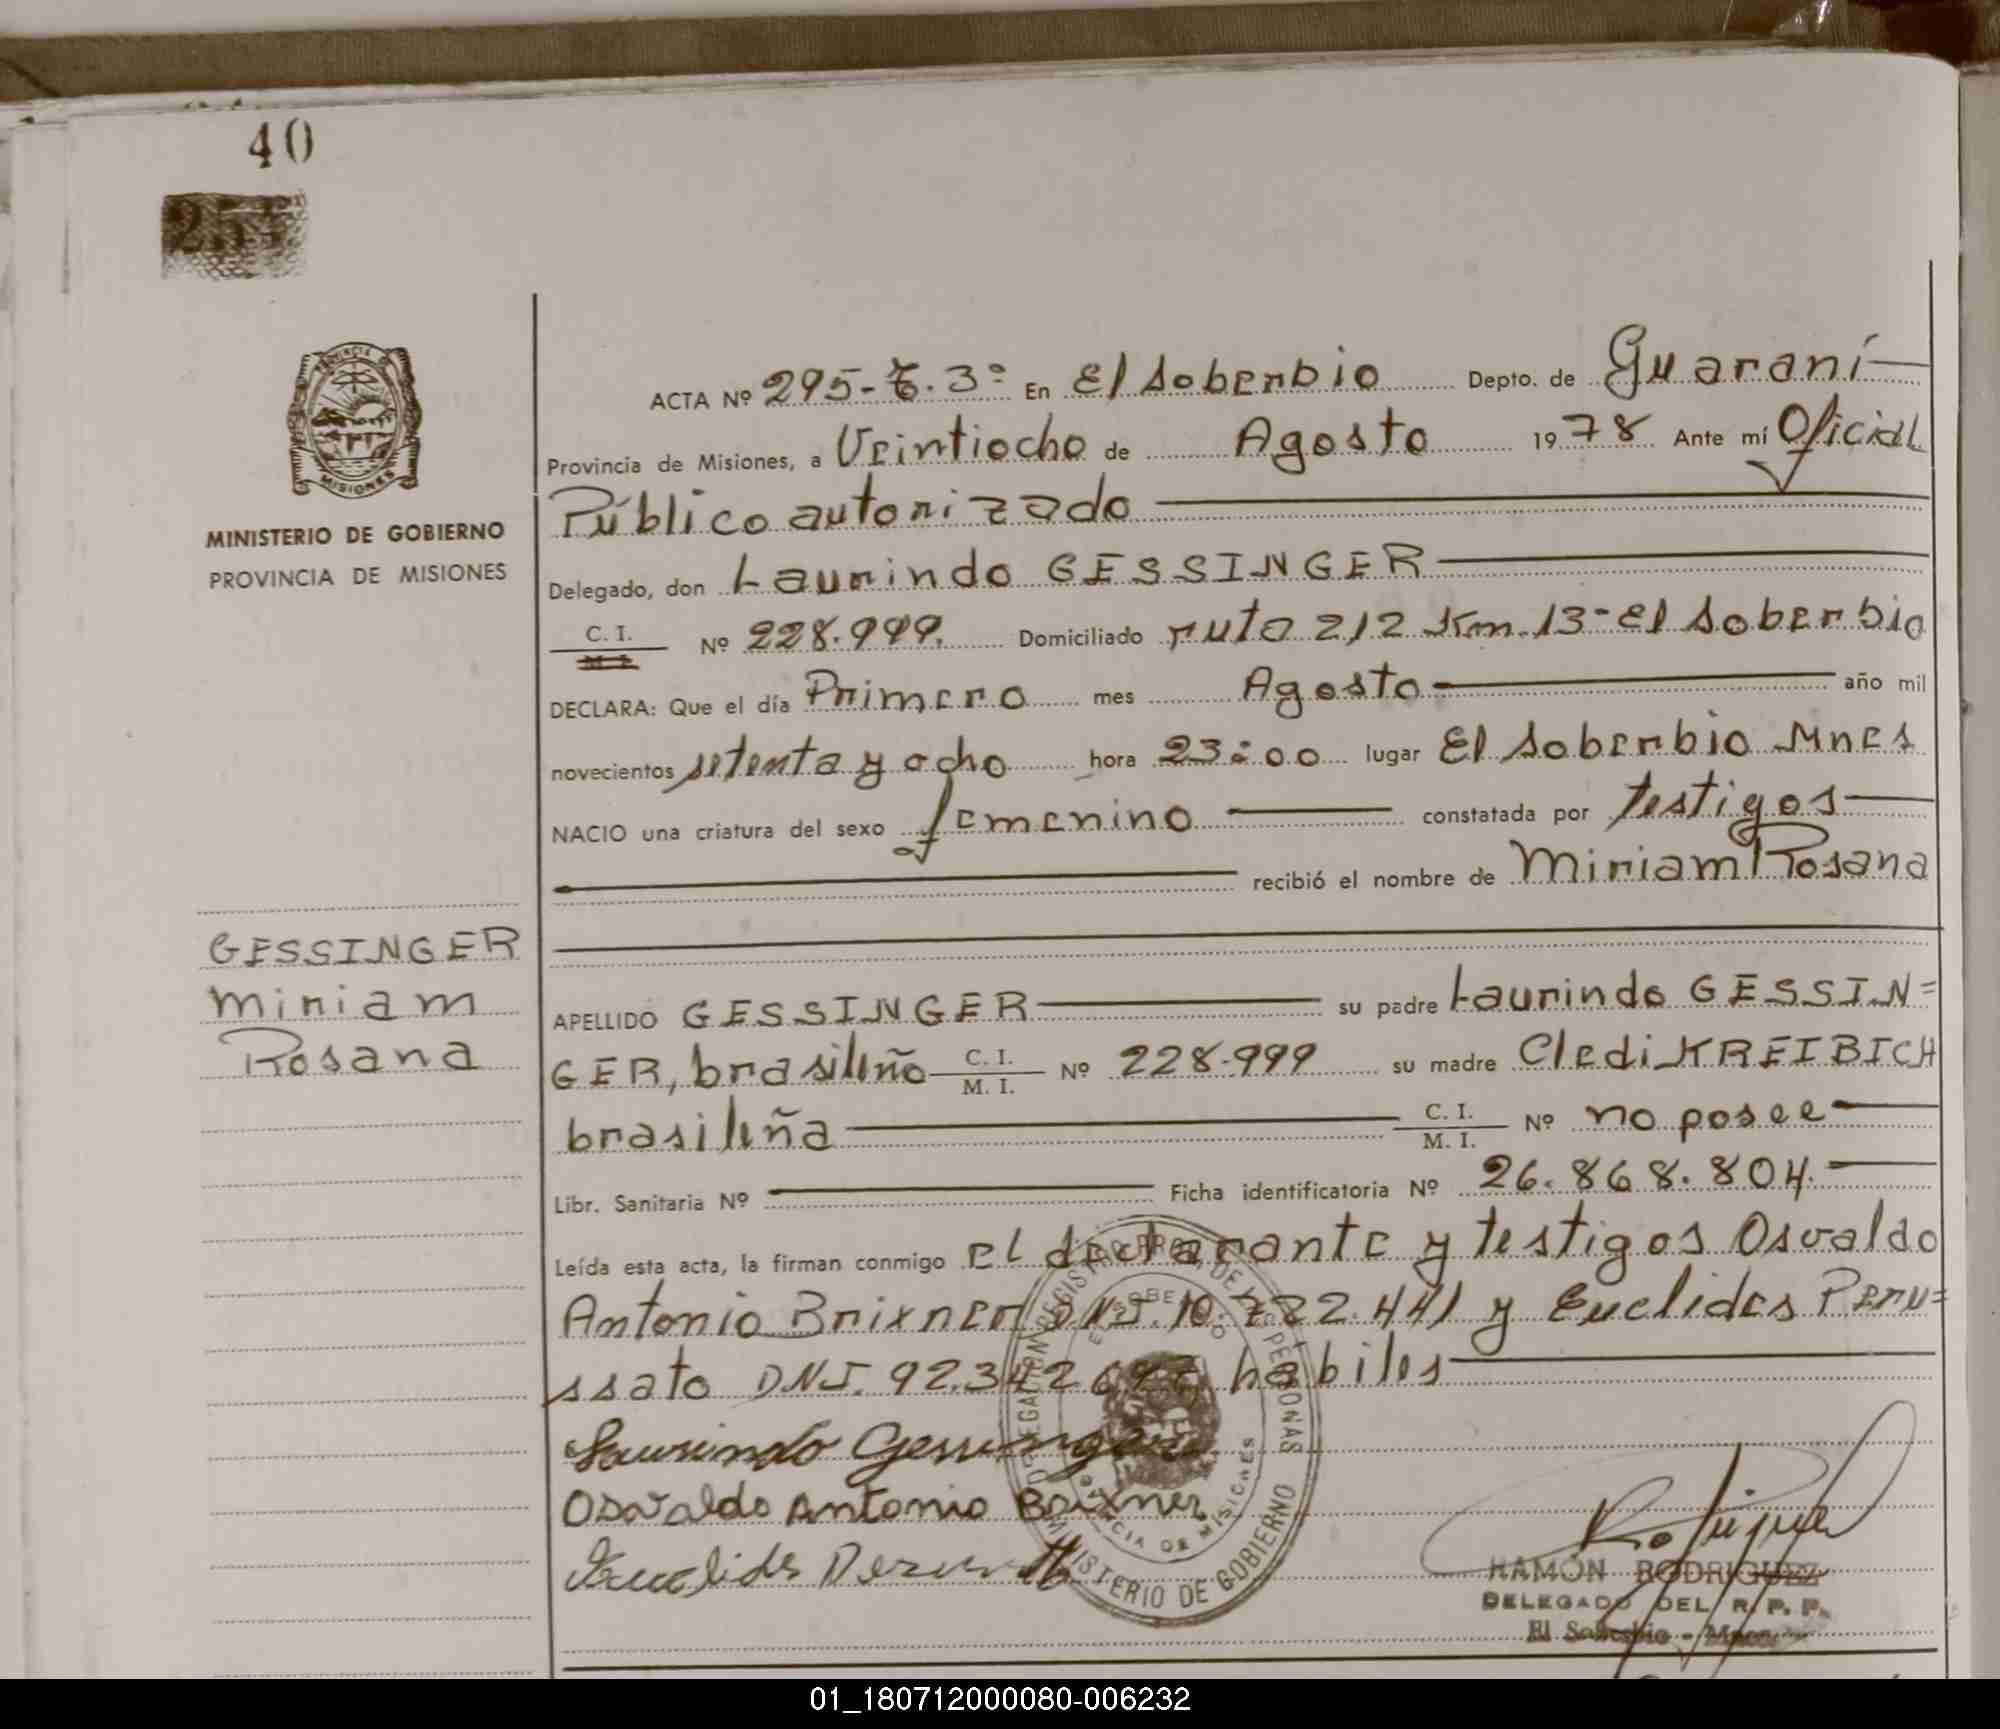 40
PROVINCIA DE
MISIONES
MINISTERIO DE GOBIERNO
PROVINCIA DE MISIONES
ACTA Nº 295-T.3º En El Soberbio Depto. de Guaraní
Provincia de Misiones, a Veintiocho de Agosto 1978 Ante mí Oficial
Público autorizado
Delegado, don Laurindo GESSINGER
C. I. M. I. Nº 228.999. Domiciliado ruta 212 Km. 13-El Soberbio
DECLARA: Que el día Primero mes Agosto año mil
novecientos setenta y ocho hora 23:00 lugar El Soberbio Mnes
NACIO una criatura del sexo femenino constatada por testigos
recibió el nombre de Miriam Rosana
GESSINGER
Miriam
Rosana
APELLIDO GESSINGER su padre Laurindo GESSIN=
GER, brasileño C. I. M. I. Nº 228.999 su madre Cledi KREIBICH
brasileña C. I. M. I. Nº no posee
Libr. Sanitaria Nº Ficha identificatoria Nº 26.868.804.
Leída esta acta, la firman conmigo el declarante y testigos Osvaldo
Antonio Brixner DNI. 10.722.441 y Euclides Peru=
ssato DNI. 92.342697 hábiles
Laurindo Gessinger
Osvaldo Antonio Brixner
Euclides
MINISTERIO DE GOBIERNO
PROVINCIA DE MISIONES
RAMÓN RODRIGUEZ
DELEGADO DEL R. P. P.
El Soberbio - Mnes
01_180712000080-006232